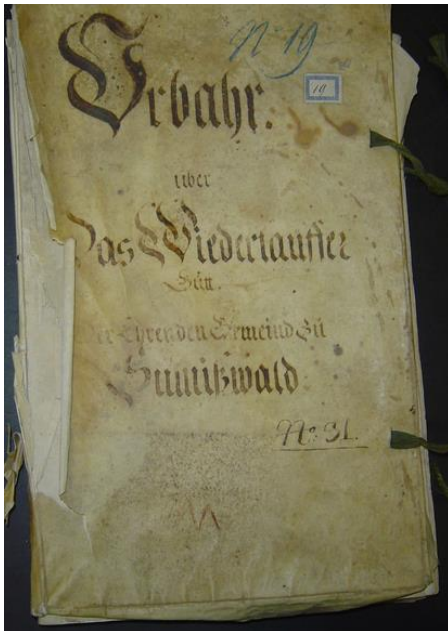 No 19
19
Urbahr.
über
Das Wiedertäuffer
Gutt.
Der Ehrenden Gemeind Zu
Sumißwald
No. 31.